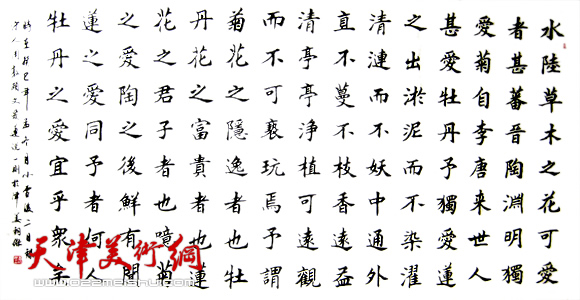 水陸草木之花可愛
者甚蕃晋陶淵明獨
愛菊自李唐来世人
甚愛牡丹予獨愛蓮
之出淤泥而不染濯
清漣而不妖中通外
直不蔓不枝香遠益
清亭亭淨植可遠觀
而不可褻玩焉予謂
菊花之隱逸者也牡
丹花之富貴者也蓮
花之君子者也噫菊
之愛陶之後鮮有聞
蓮之愛同予者何人
牡丹之愛宜乎衆矣
癸巳年 月小雪後二日
愛蓮說一則於津
天津美術網